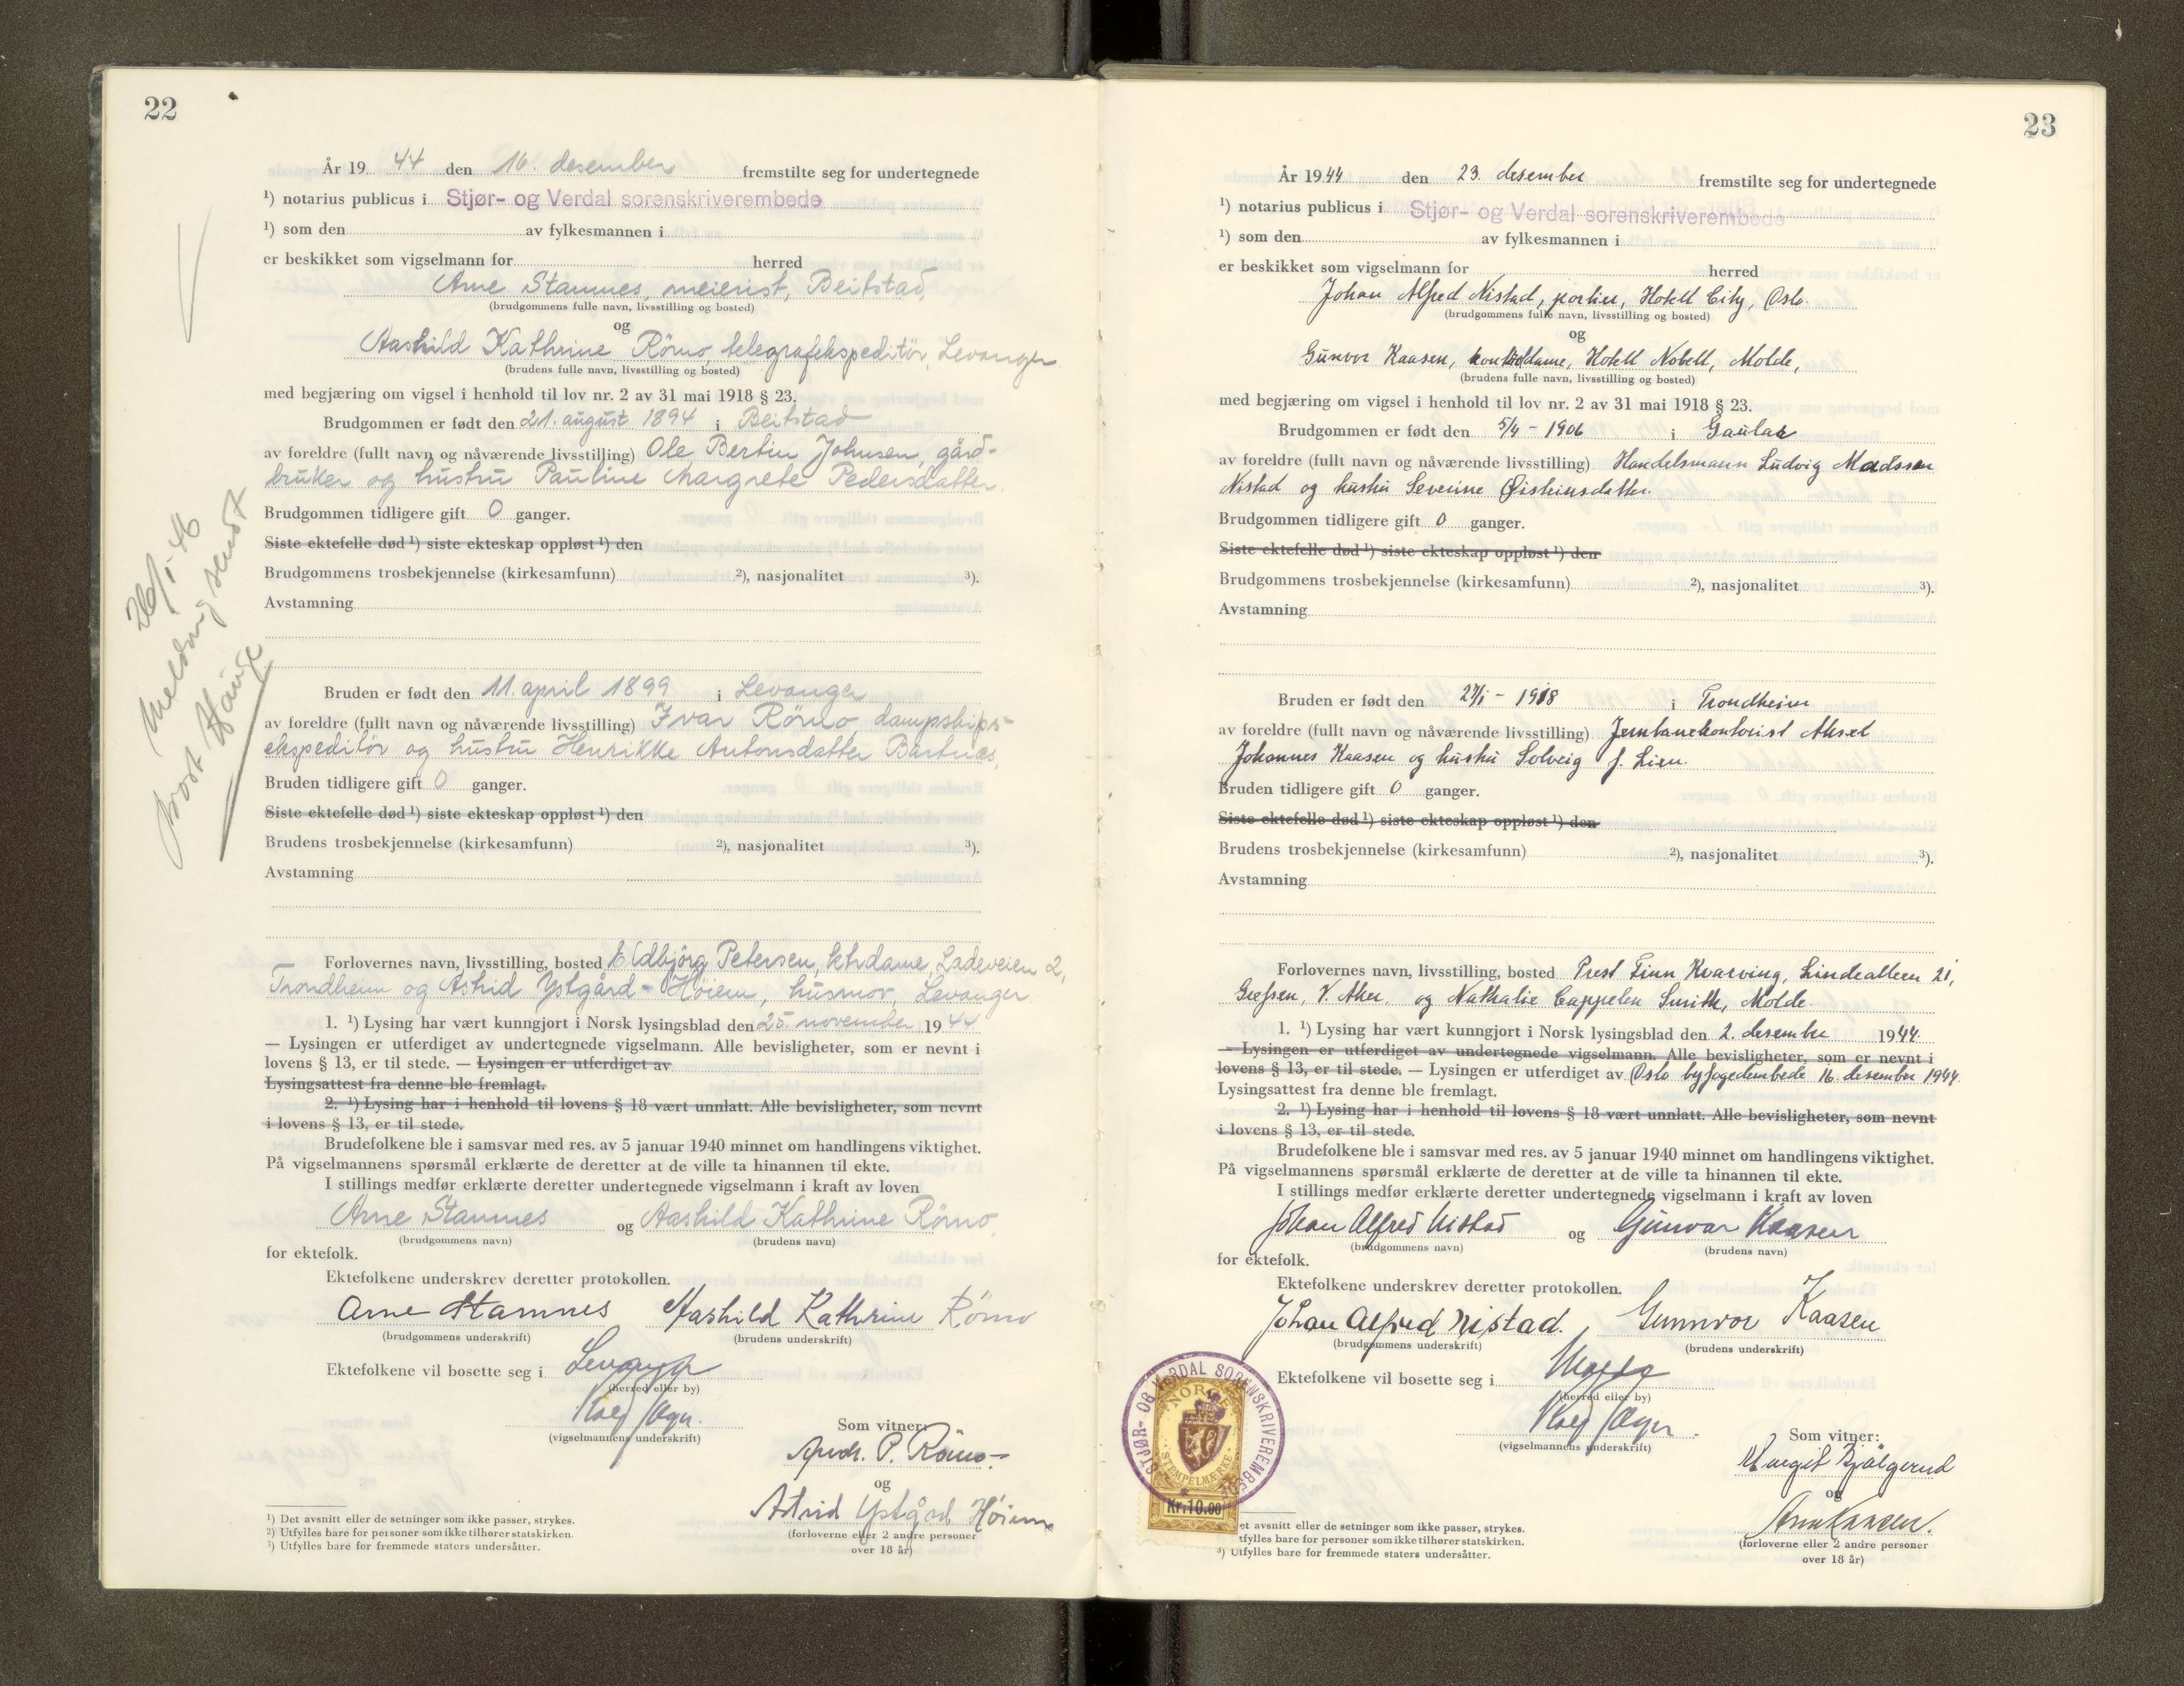 22
År 19 44 den 16. desember fremstilte seg for undertegnede
¹) notarius publicus i Stjør- og Verdal sorenskriverembede
¹) som den av fylkesmannen i
er beskikket som vigselmann for herred
Arne Stamnes, meierist, Beitstad,
(brudgommens fulle navn, livsstilling og bosted)
og
Aashild Kathrine Römo, telegrafekspeditör, Levanger
(brudens fulle navn, livsstilling og bosted)
med begjæring om vigsel i henhold til lov nr. 2 av 31 mai 1918 § 23.
Brudgommen er født den 21. august 1894 i Beitstad
av foreldre (fullt navn og nåværende livsstilling) Ole Bertin Johnsen, gård-
bruker og hustru Pauline Margrete Pedersdatter.
Brudgommen tidligere gift 0 ganger.
Siste ektefelle død ¹) siste ekteskap oppløst ¹) den
Brudgommens trosbekjennelse (kirkesamfunn) ²), nasjonalitet ³).
Avstamning
26/1-46
Melding sendt
Prost Hauge
Bruden er født den 11. april 1899 i Levanger
av foreldre (fullt navn og nåværende livsstilling) Ivar Römo, dampskips-
ekspeditör og hustru Henrikke Antonsdatter Bartnes,
Bruden tidligere gift 0 ganger.
Siste ektefelle død ¹) siste ekteskap oppløst ¹) den
Brudens trosbekjennelse (kirkesamfunn) ²), nasjonalitet ³).
Avstamning
Forlovernes navn, livsstilling, bosted Eldbjörg Petersen, ktrdame, Ladeveien 2,
Trondheim og Astrid Ystgård-Höiem, husmor, Levanger
1. ¹) Lysing har vært kunngjort i Norsk lysingsblad den 25. november 19 44
— Lysingen er utferdiget av undertegnede vigselmann. Alle bevisligheter, som er nevnt i
lovens § 13, er til stede. — Lysingen er utferdiget av
Lysingsattest fra denne ble fremlagt.
2. ¹) Lysing har i henhold til lovens § 18 vært unnlatt. Alle bevisligheter, som nevnt
i lovens § 13, er til stede.
Brudefolkene ble i samsvar med res. av 5 januar 1940 minnet om handlingens viktighet.
På vigselmannens spørsmål erklærte de deretter at de ville ta hinannen til ekte.
I stillings medfør erklærte deretter undertegnede vigselmann i kraft av loven
Arne Stamnes og Aashild Kathrine Römo,
(brudgommens navn) (brudens navn)
for ektefolk.
Ektefolkene underskrev deretter protokollen.
Arne Stamnes Aashild Kathrine Römo
(brudgommens underskrift) (brudens underskrift)
Ektefolkene vil bosette seg i Levanger
(herred eller by)
(vigselmannens underskrift)
Som vitner:
Andr. P. Römo
og
Astrid Ystgård Höiem
(forloverne eller 2 andre personer
over 18 år)
¹) Det avsnitt eller de setninger som ikke passer, strykes.
²) Utfylles bare for personer som ikke tilhører statskirken.
³) Utfylles bare for fremmede staters undersåtter.
23
År 1944 den 23. desember fremstilte seg for undertegnede
¹) notarius publicus i Stjør- og Verdal sorenskriverembede
¹) som den av fylkesmannen i
er beskikket som vigselmann for herred
Johan Alfred Nistad, portier, Hotell City, Oslo.
(brudgommens fulle navn, livsstilling og bosted)
og
Gunvor Kaasen, kontordame, Hotell Nobell, Molde,
(brudens fulle navn, livsstilling og bosted)
med begjæring om vigsel i henhold til lov nr. 2 av 31 mai 1918 § 23.
Brudgommen er født den 5/4 - 1906 i Gaular
av foreldre (fullt navn og nåværende livsstilling) Handelsmann Ludvig Madssen
Nistad og hustru Severine Øisteinsdatter.
Brudgommen tidligere gift 0 ganger.
Siste ektefelle død ¹) siste ekteskap oppløst ¹) den
Brudgommens trosbekjennelse (kirkesamfunn) ²), nasjonalitet ³).
Avstamning
Bruden er født den 27/1 - 1918 i Trondheim
av foreldre (fullt navn og nåværende livsstilling) Jernbanekontorist Aksel
Johannes Kaasen og hustru Solveig f. Lien.
Bruden tidligere gift 0 ganger.
Siste ektefelle død ¹) siste ekteskap oppløst ¹) den
Brudens trosbekjennelse (kirkesamfunn) ²), nasjonalitet ³).
Avstamning
Forlovernes navn, livsstilling, bosted Prest Finn Kvarving, Lindealleen 21,
V. Aker, og Nathalie Cappelen Smith, Molde.
1. ¹) Lysing har vært kunngjort i Norsk lysingsblad den 2. desember 1944.
— Lysingen er utferdiget av undertegnede vigselmann. Alle bevisligheter, som er nevnt i
lovens § 13, er til stede. — Lysingen er utferdiget av Oslo byfogedembede 16. desember 1944.
Lysingsattest fra denne ble fremlagt.
2. ¹) Lysing har i henhold til lovens § 18 vært unnlatt. Alle bevisligheter, som nevnt
i lovens § 13, er til stede.
Brudefolkene ble i samsvar med res. av 5 januar 1940 minnet om handlingens viktighet.
På vigselmannens spørsmål erklærte de deretter at de ville ta hinannen til ekte.
I stillings medfør erklærte deretter undertegnede vigselmann i kraft av loven
Johan Alfred Nistad og Gunvor Kaasen
(brudgommens navn) (brudens navn)
for ektefolk.
Ektefolkene underskrev deretter protokollen.
Johan Alfred Nistad. Gunnvor Kaasen
(brudgommens underskrift) (brudens underskrift)
Ektefolkene vil bosette seg i Molde
(herred eller by)
(vigselmannens underskrift)
STJØR- OG VERDAL SORENSKRIVEREMBEDE
NORGE
STEMPELMERKE
Kr. 10.00
Som vitner:
Margit
og
(forloverne eller 2 andre personer
over 18 år)
et avsnitt eller de setninger som ikke passer, strykes.
tfylles bare for personer som ikke tilhører statskirken.
³) Utfylles bare for fremmede staters undersåtter.